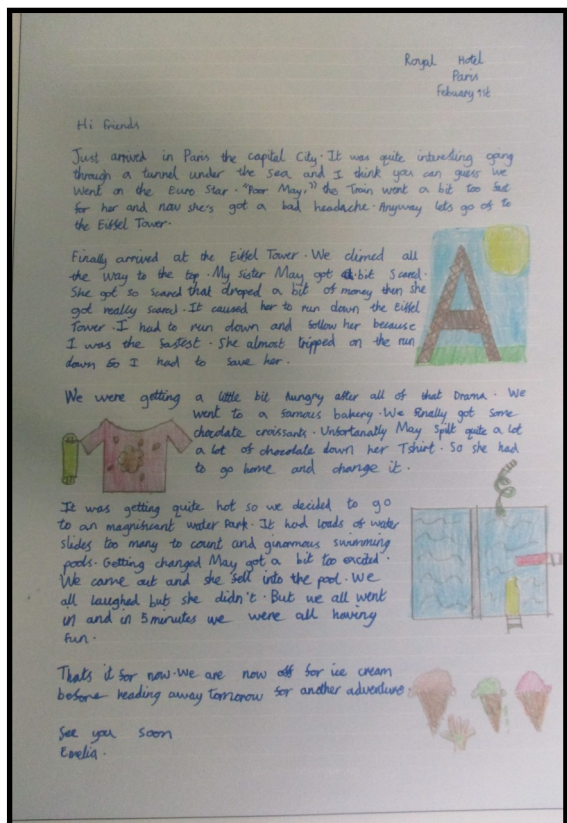 Royal Hotel
Paris
Febuary 1st
Hi friends
Just arrived in Paris the capital City. It was quite interesting going
through a tunnel under the sea and I think you can guess we
went on the Euro Star. "Poor May," the Train went a bit too fast
for her and now she's got a bad headache. Anyway lets go of to
the Eiffel Tower.
Finally arrived at the Eiffel Tower. We climed all
the way to the top. My sister May got a bit scared.
She got so scared that droped a bit of money then she
got really scared. It caused her to run down the Eiffel
Tower. I had to run down and follow her because
I was the fastest. She almost tripped on the run
down so I had to save her.
We were getting a little bit hungry after all of that Drama. We
went to a famous bakery. We finally got some
chocolate croissants. Unfortanatly May spilt quite a lot
a lot of chocolate down her Tshirt. So she had
to go home and change it.
It was getting quite hot so we decided to go
to an magnificant water park. It had loads of water
slides too many to count and ginormous swimming
pools. Getting changed May got a bit too excited.
We came out and she fell into the pool. We
all laughed but she didn't. But we all went
in and in 5 minutes we were all having
fun.
Thats it for now. We are now off for ice cream
before heading away tomorrow for another adventure
See you soon
Emelia.
A